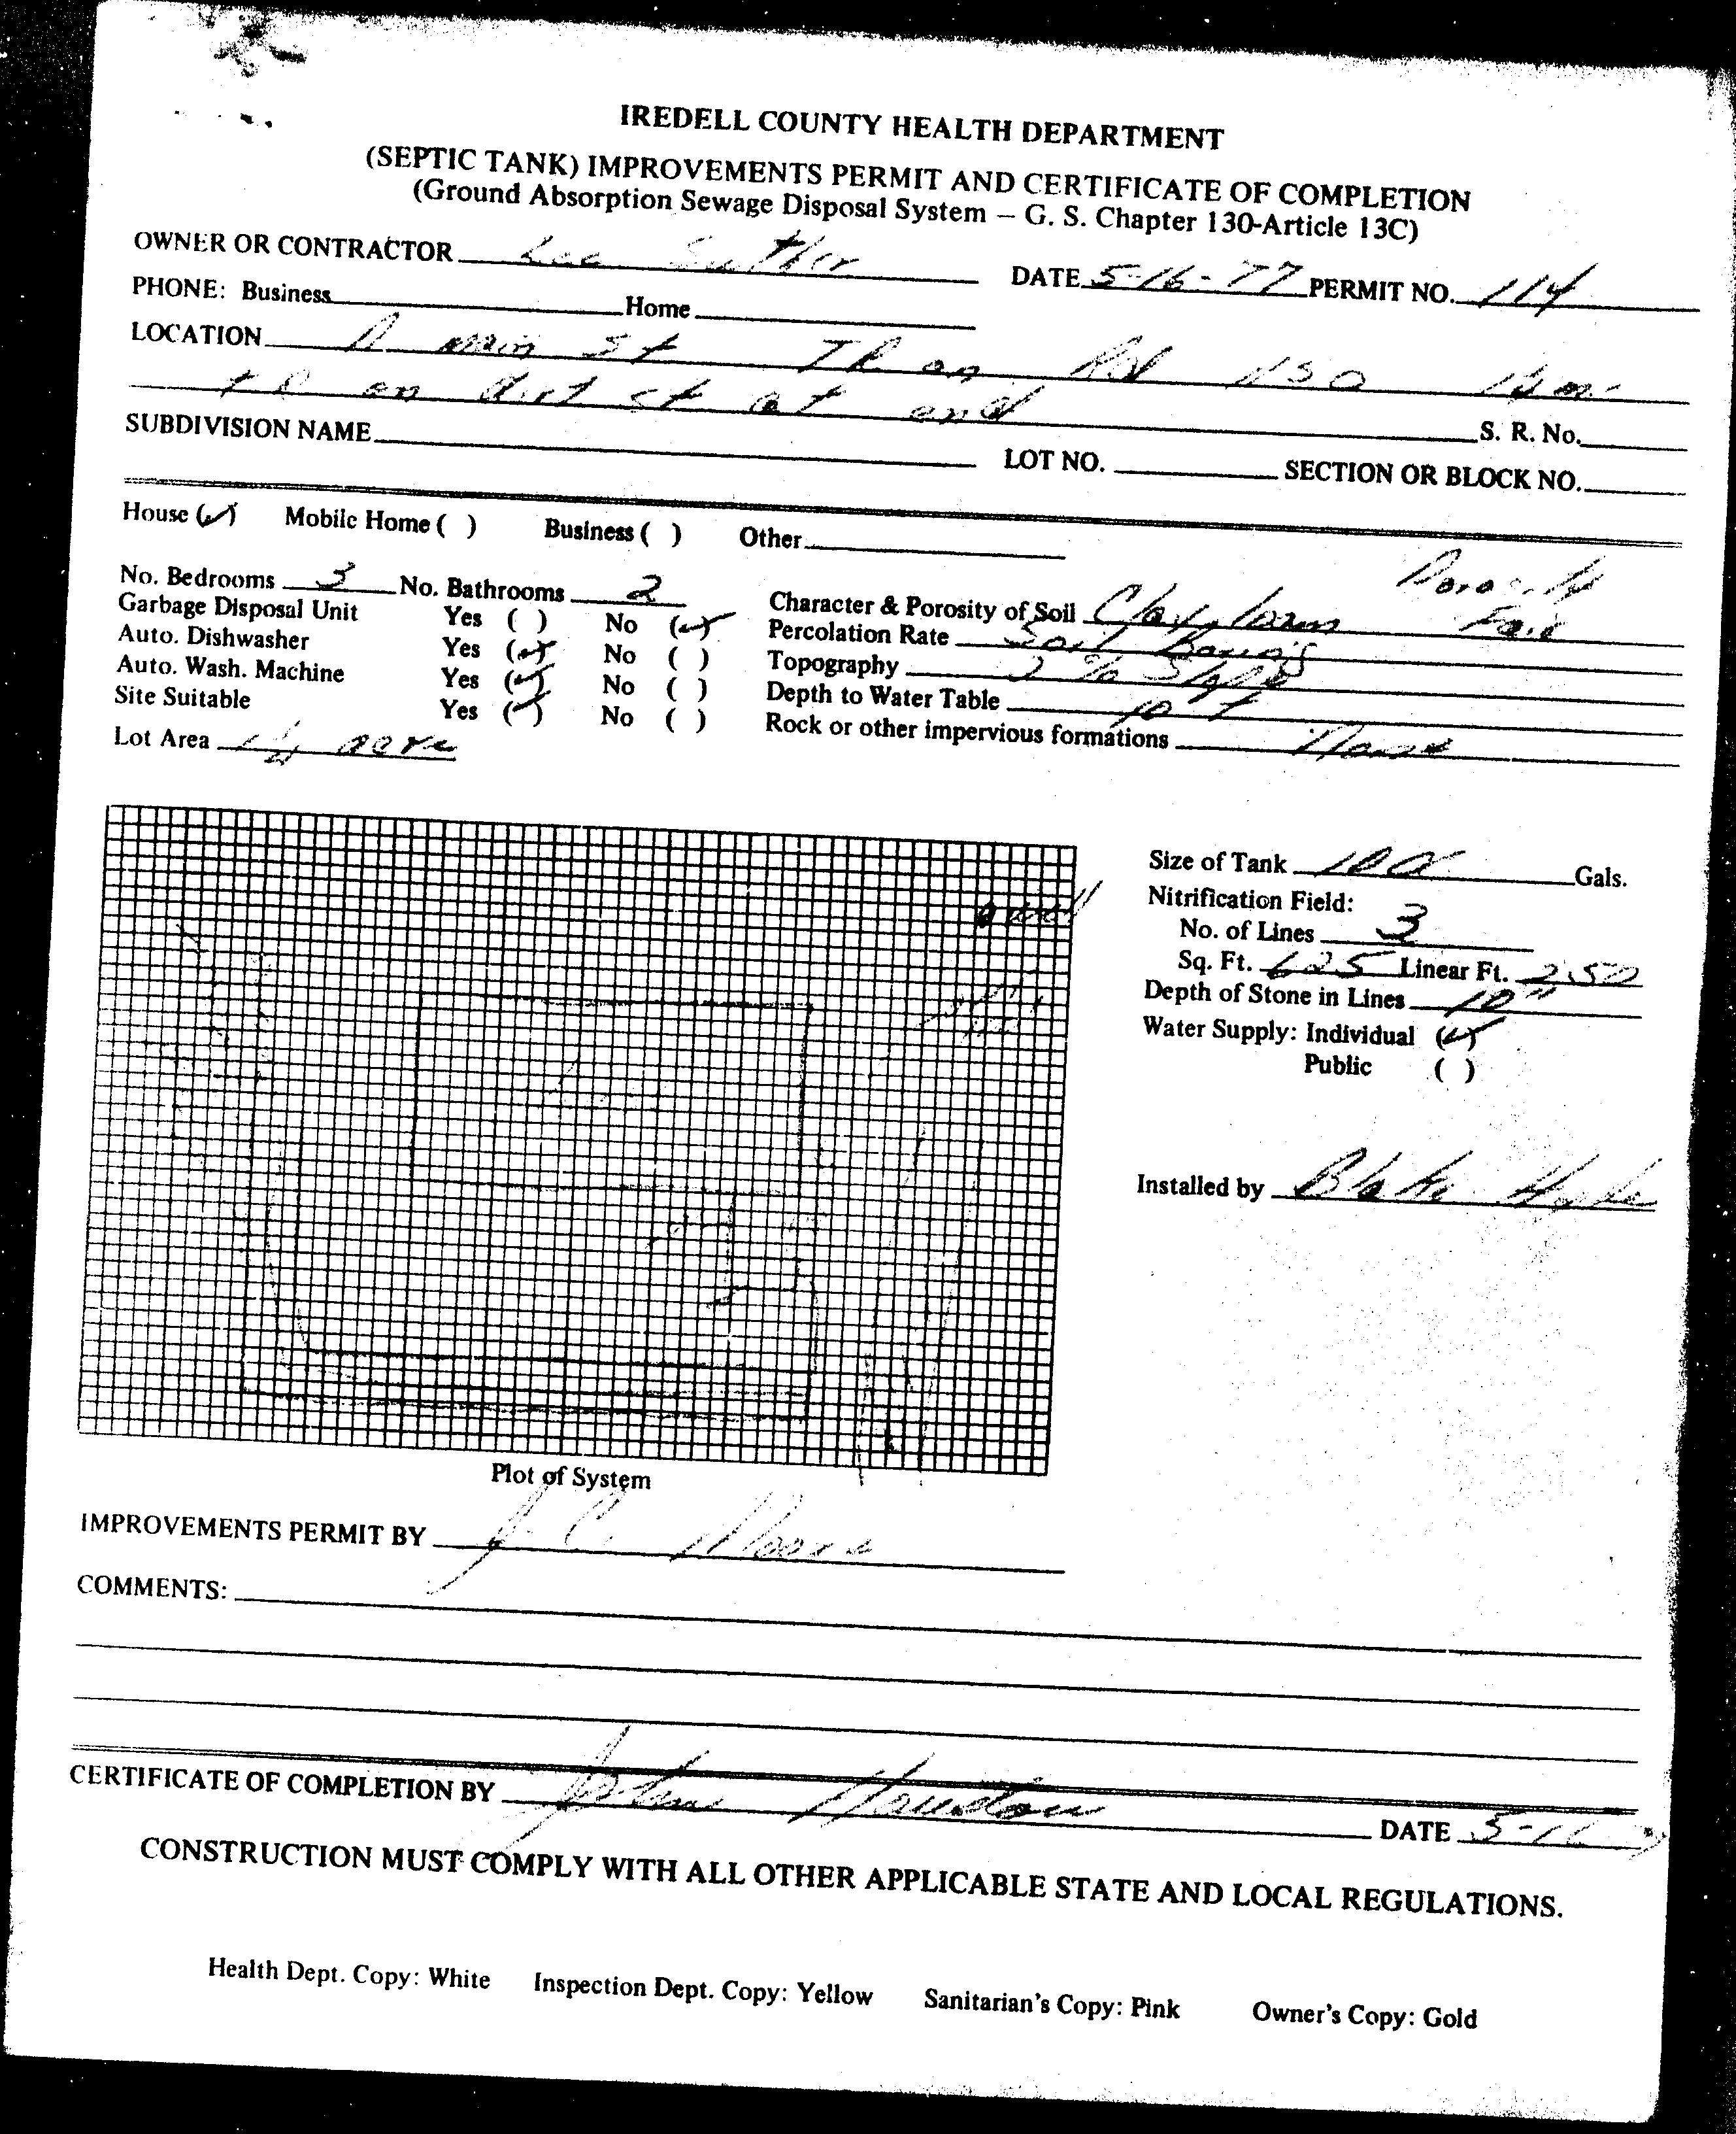 IREDELL COUNTY HEALTH DEPARTMENT
(SEPTIC TANK) IMPROVEMENTS PERMIT AND CERTIFICATE OF COMPLETION
(Ground Absorption Sewage Disposal System – G. S. Chapter 130-Article 13C)
OWNER OR CONTRACTOR Lee Suther DATE 5-16-77 PERMIT NO. 114
PHONE: Business Home
LOCATION main St TR on Rd
on dirt st at end S. R. No.
SUBDIVISION NAME LOT NO. SECTION OR BLOCK NO.
House (✓) Mobile Home ( ) Business ( ) Other
No. Bedrooms 3 No. Bathrooms 2 Character & Porosity of Soil Clay loam Porosity Fair
Garbage Disposal Unit Yes ( ) No (✓) Percolation Rate Soil
Auto. Dishwasher Yes (✓) No ( ) Topography 2 % Slope
Auto. Wash. Machine Yes (✓) No ( ) Depth to Water Table 10
Site Suitable Yes (✓) No ( ) Rock or other impervious formations None
Lot Area acre
Size of Tank Gals.
Nitrification Field:
No. of Lines 3
Sq. Ft. 625 Linear Ft. 250
Depth of Stone in Lines 10"
Water Supply: Individual (✓)
Public ( )
Installed by Blake
Plot of System
IMPROVEMENTS PERMIT BY J. C. Moore
COMMENTS:
CERTIFICATE OF COMPLETION BY Houston DATE 5-16
CONSTRUCTION MUST COMPLY WITH ALL OTHER APPLICABLE STATE AND LOCAL REGULATIONS.
Health Dept. Copy: White Inspection Dept. Copy: Yellow Sanitarian's Copy: Pink Owner's Copy: Gold